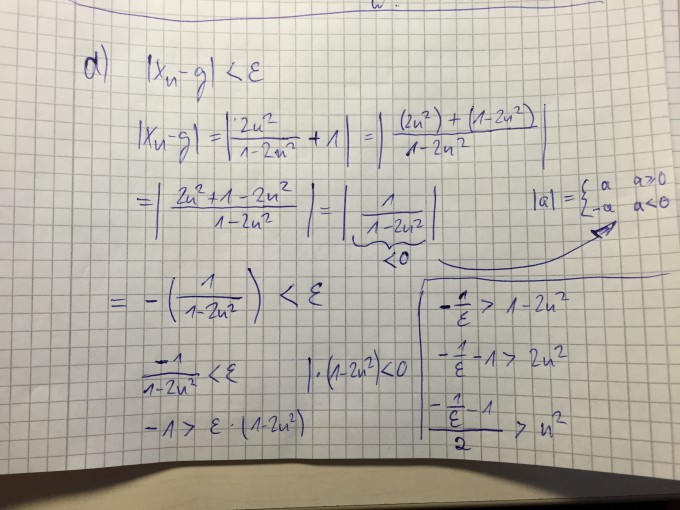 d) |xₙ-g| < ε
|xₙ-g| = |2n²/(1-2n²) + 1| = |((2n²) + (1-2n²))/(1-2n²)|
= |(2n²+1-2n²)/(1-2n²)| = |1/(1-2n²)|
<0
|a| = { a a≥0
-a a<0
= -(1/(1-2n²)) < ε
-1/(1-2n²) < ε |·(1-2n²)<0
-1 > ε·(1-2n²)
-1/ε > 1-2n²
-1/ε -1 > 2n²
(-1/ε -1)/2 > n²